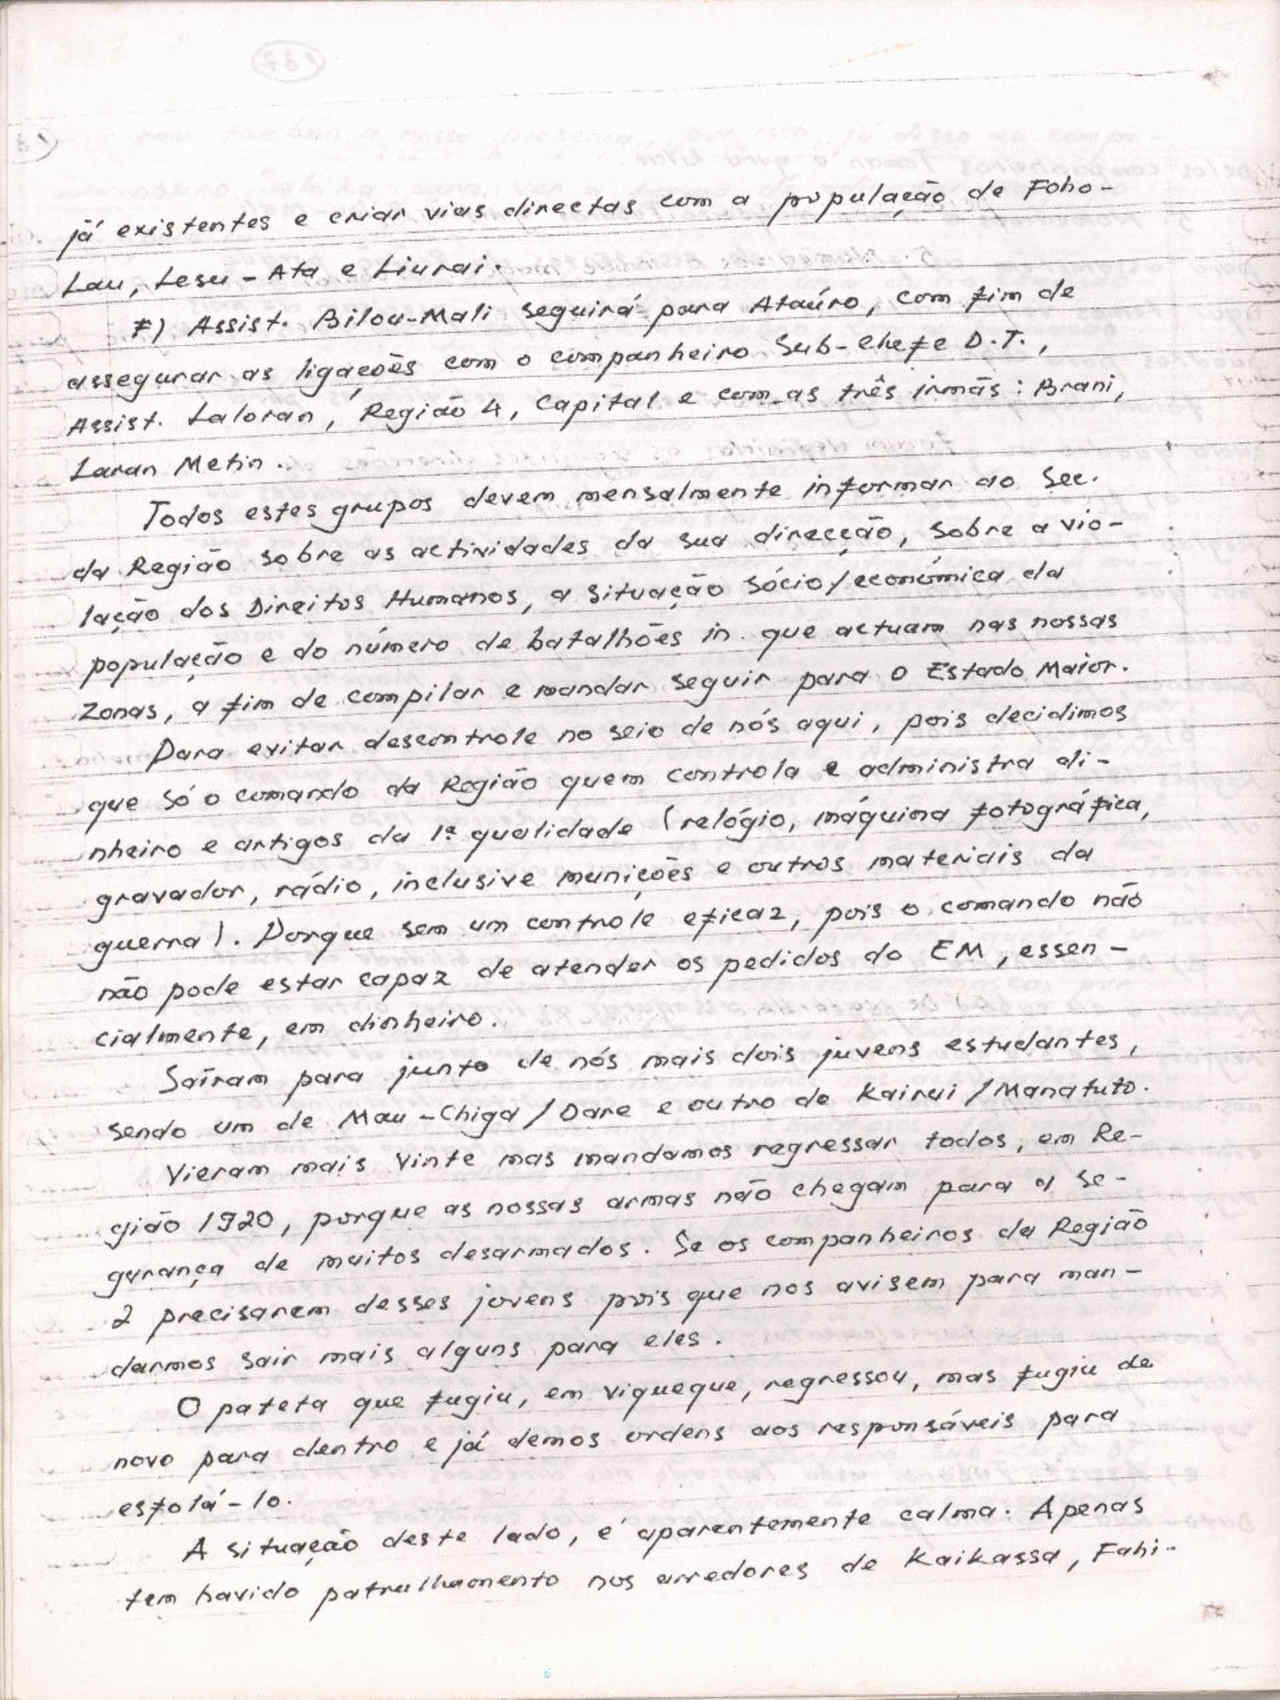 já existentes e criar vias directas com a população de Foho-
Lau, Lesu-Ata e Liurai.
F) Assist. Bilou-Mali seguirá para Ataúro, com fim de
assegurar as ligações com o companheiro Sub-Chefe D.T.,
Assist. Laloran, Região 4, Capital e com as três irmãs: Brani,
Laran Metin.
Todos estes grupos devem mensalmente informar ao Sec.
da Região sobre as actividades da sua direcção, sobre a vio-
lação dos Direitos Humanos, a situação sócio/económica da
população e do número de batalhões in. que actuam nas nossas
zonas, a fim de compilar e mandar seguir para o Estado Maior.
Para evitar descontrole no seio de nós aqui, pois decidimos
que só o comando da Região quem controla e administra di-
nheiro e artigos da 1ª qualidade (relógio, máquina fotográfica,
gravador, rádio, inclusive munições e outros materiais da
guerra). Porque sem um controle eficaz, pois o comando não
não pode estar capaz de atender os pedidos do EM, essen-
cialmente, em dinheiro.
Saíram para junto de nós mais dois juvens estudantes,
sendo um de Mau-Chiga/Dare e outro de Kairui/Manatuto.
Vieram mais vinte mas mandamos regressar todos, em Re-
gião 1920, porque as nossas armas não chegam para a se-
gurança de muitos desarmados. Se os companheiros da Região
2 precisarem desses jovens pois que nos avisem para man-
darmos sair mais alguns para eles.
O pateta que fugiu, em Viqueque, regressou, mas fugiu de
novo para dentro e já demos ordens aos responsáveis para
esfolá-lo.
A situação deste lado, é aparentemente calma. Apenas
tem havido patrulhamento nos arredores de Kaikassa, Fahi-